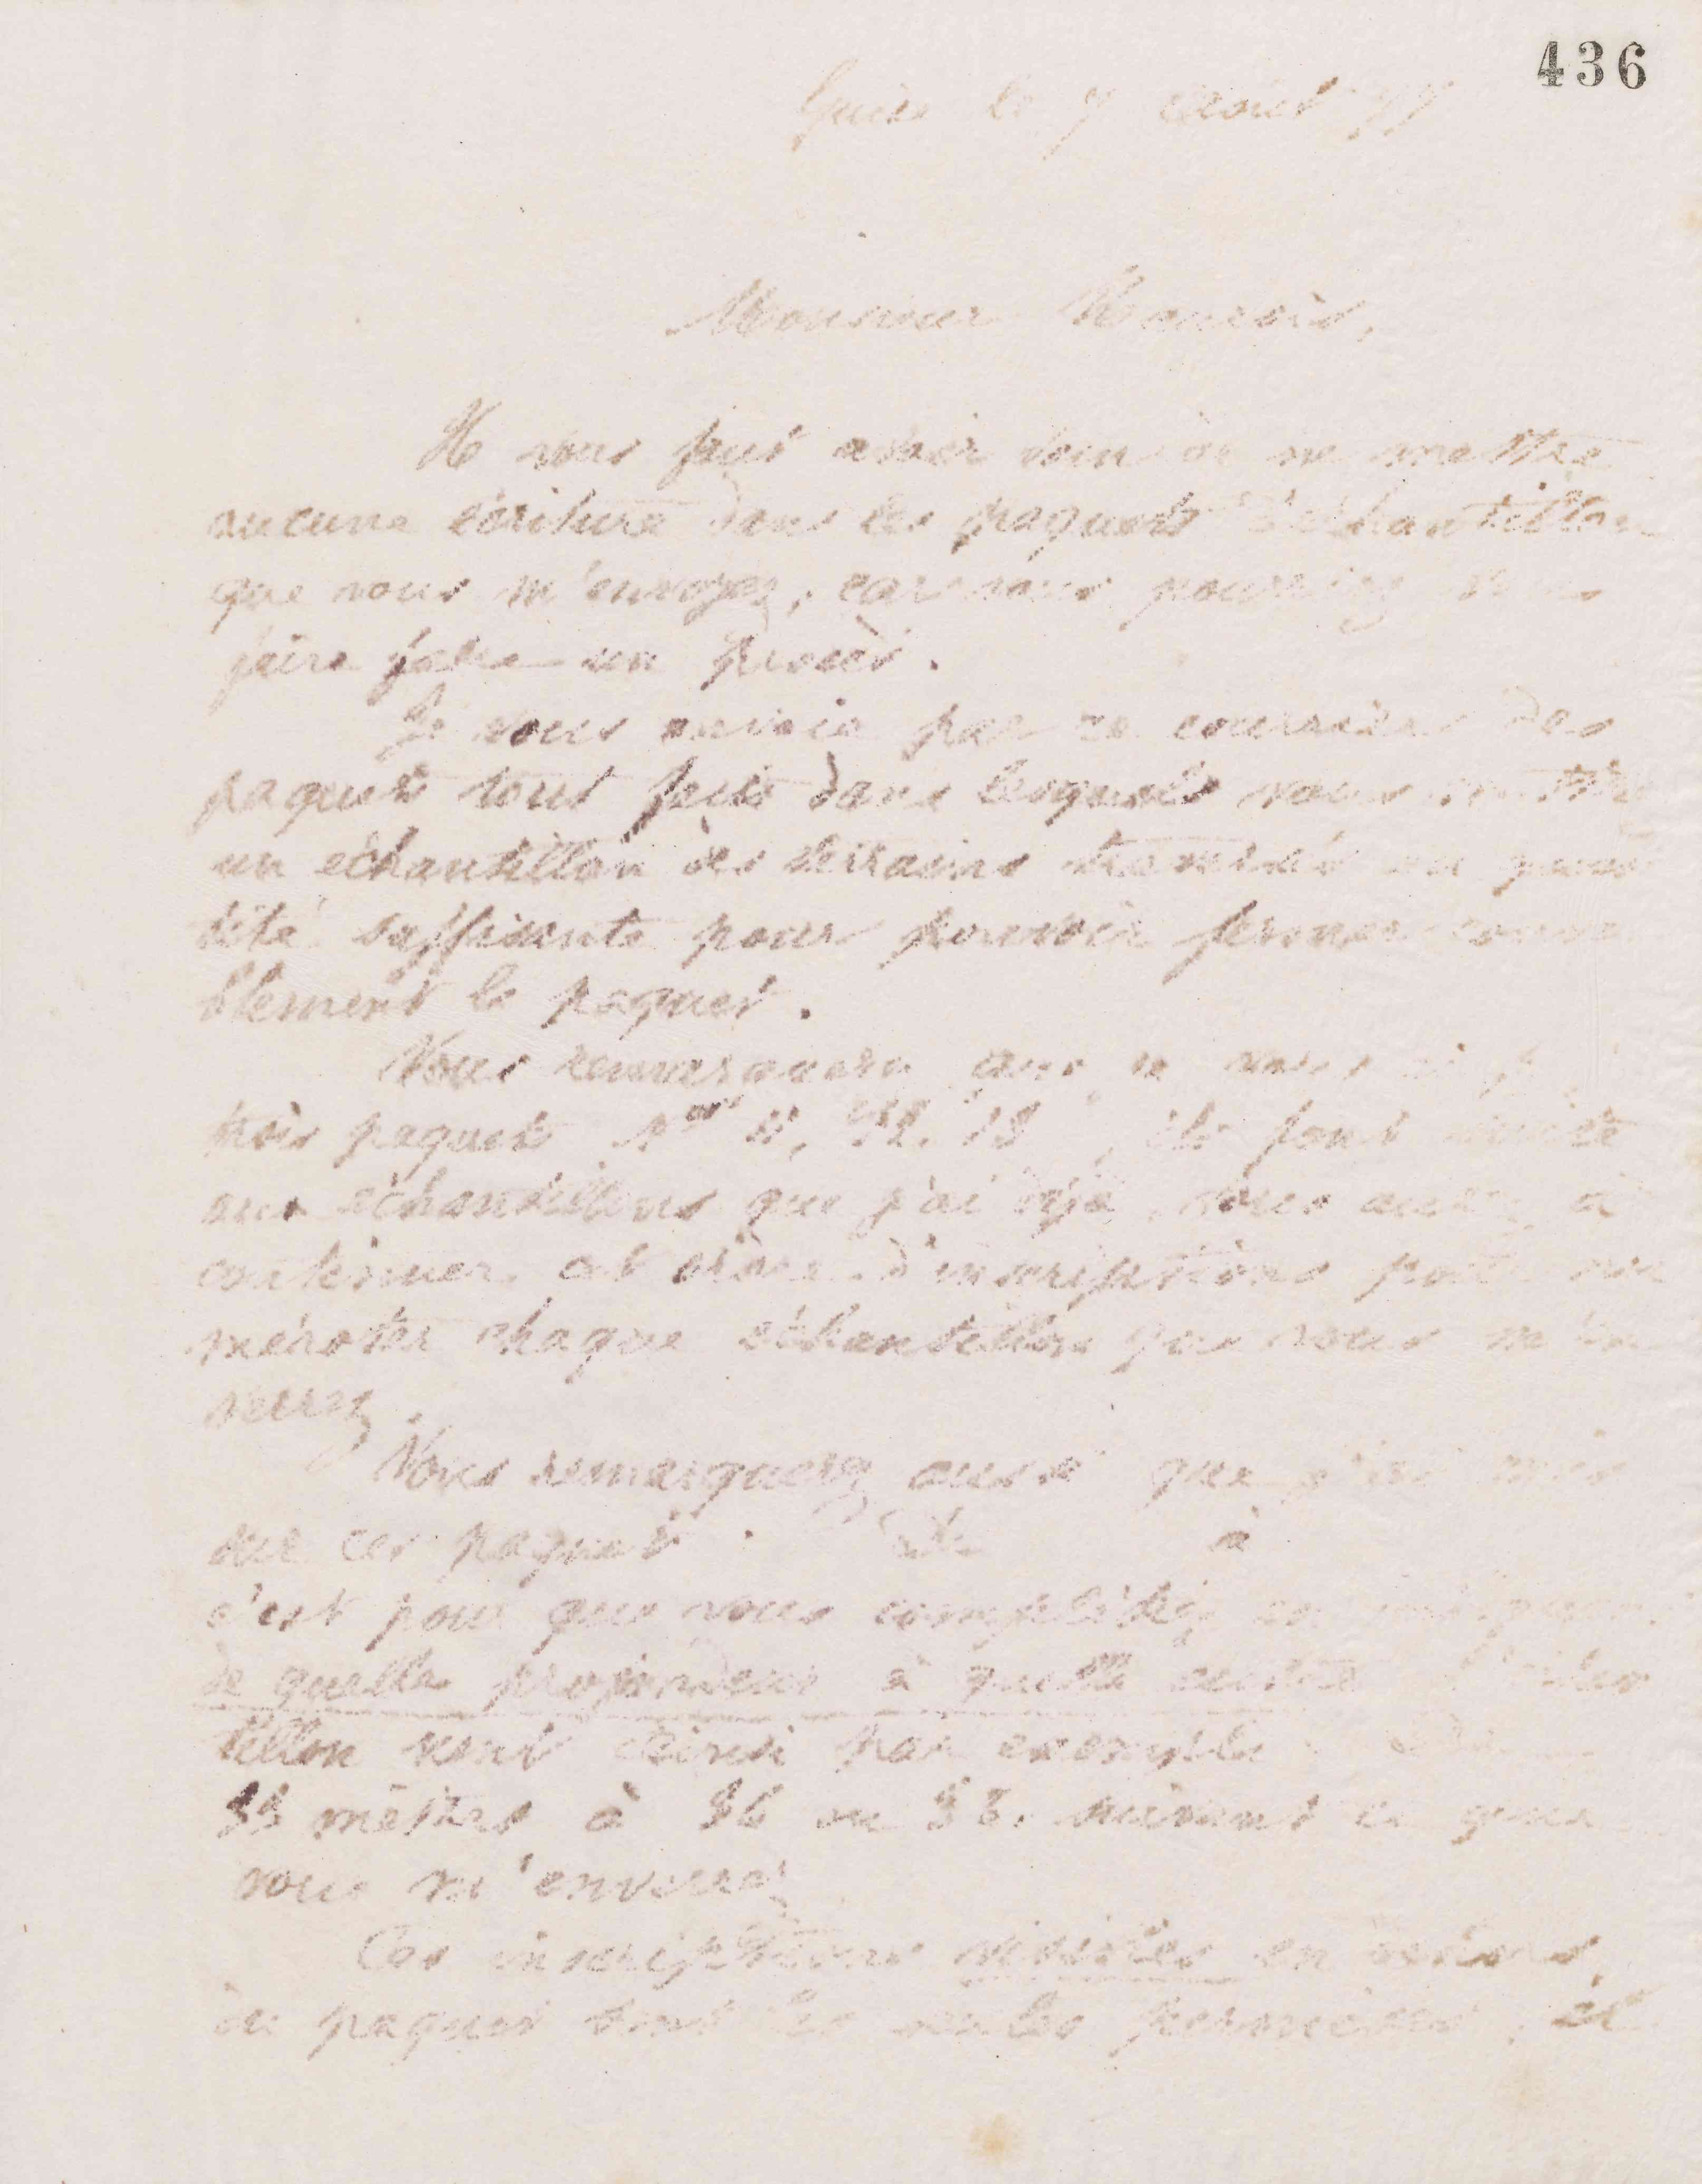 436
Guise le 7 Aout 77
Monsieur
Il vous faut avoir soin de ne mettre
aucune écriture dans les paquets d'échantillon
que vous m'envoyez, car vous pourriez vous
faire faire un procès.
Je vous envoie par ce courrier des
paquets tout faits dans lesquels vous mettrez
un échantillon des terrains traversés en quan
tité suffisante pour pouvoir fermer conve
blement le paquet.
Vous remarquerez que je vous
trois paquets Nos 11, 12, 13, ils font suite
aux échantillons que j'ai déjà, vous aurez à
continuer cet ordre d'inscriptions pour nu
méroter chaque échantillon que vous m'en
verrez.
Vous remarquerez aussi que j'ai mis
sur ces paquets de à
c'est pour que vous complétiez en indiquant
de quelle profondeur à quelle autre l'échan
tillon vient ainsi par exemple de
35 mètres à 36 ou 38. suivant ce que
vous m'enverrez
Ces inscriptions visibles en dehors
du paquet sont les seules permises, et